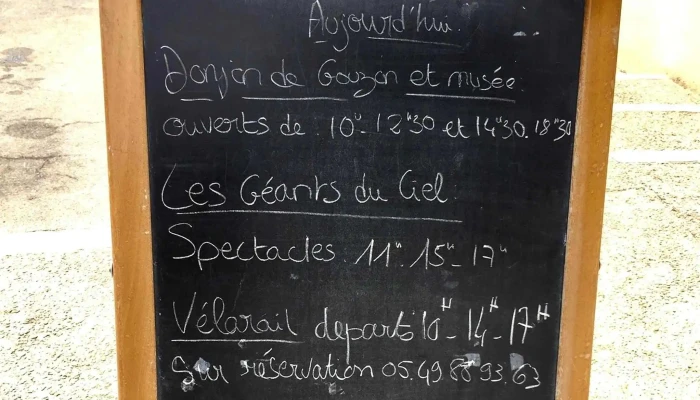 Aujourd'hui.
Donjon de Gouzon et musée
ouverts de 10H. 12H30 et 14H30. 18H30
Les Géants du Ciel
Spectacles. 11H. 15H - 17H
Vélorail departs 10H - 14H - 17H
Sur réservation 05.49 88 93.63